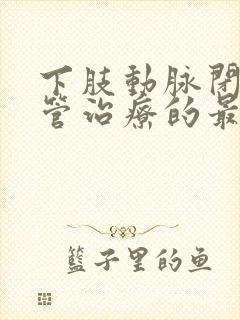 下肢動脉閉
管治療的最
籃子里的鱼